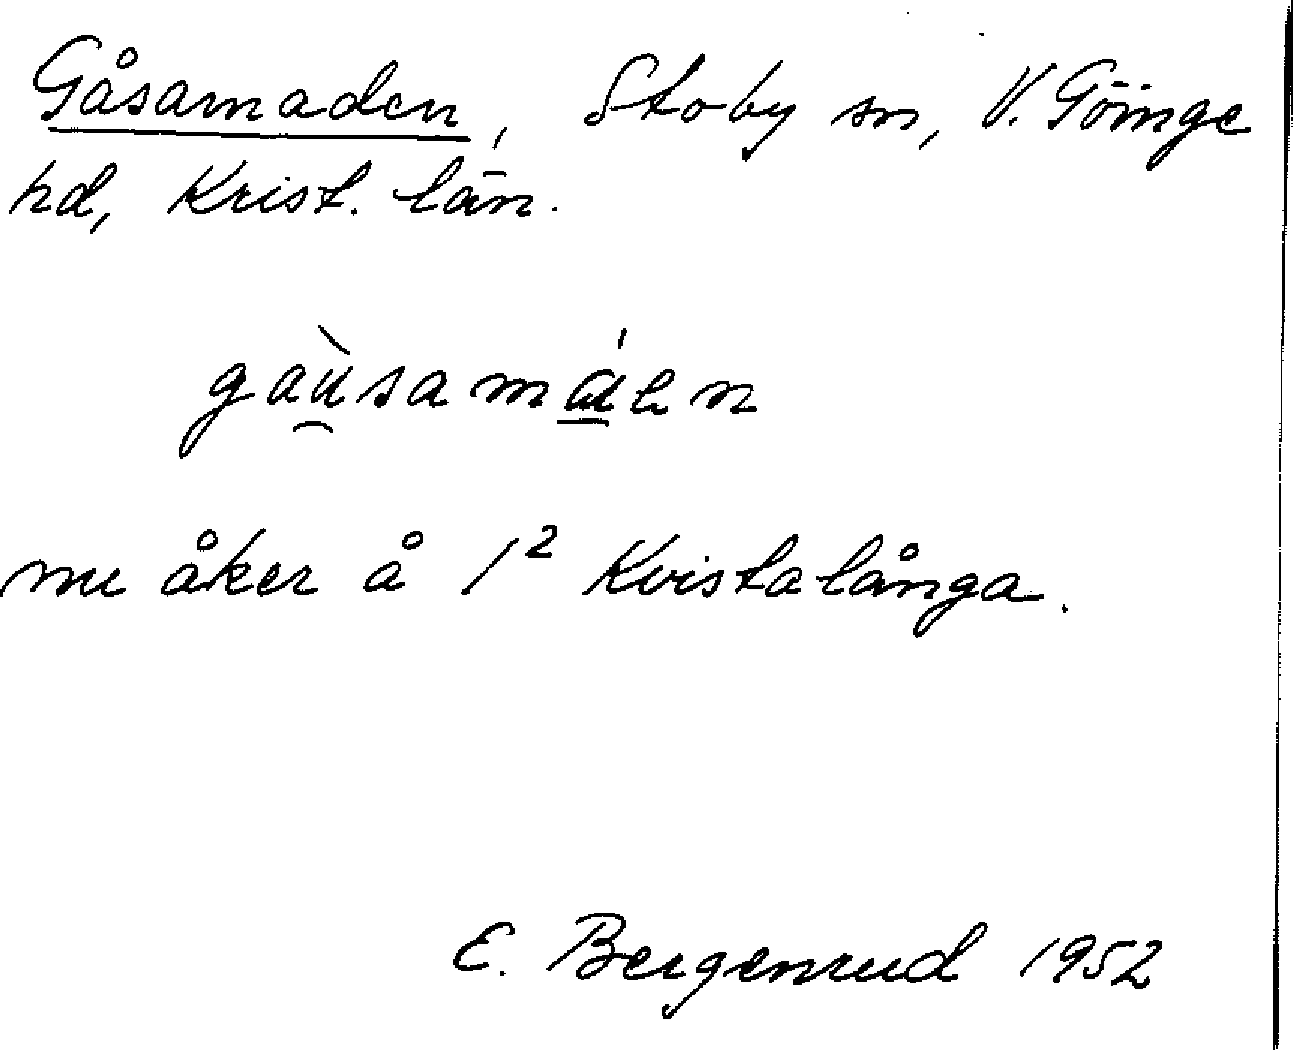 Gåsamaden, Stoby sn, V. Göinge
hd, Krist. län.
gaù̯samáen
nu åker å 1² Kvistalånga.
E. Bergenrud 1952